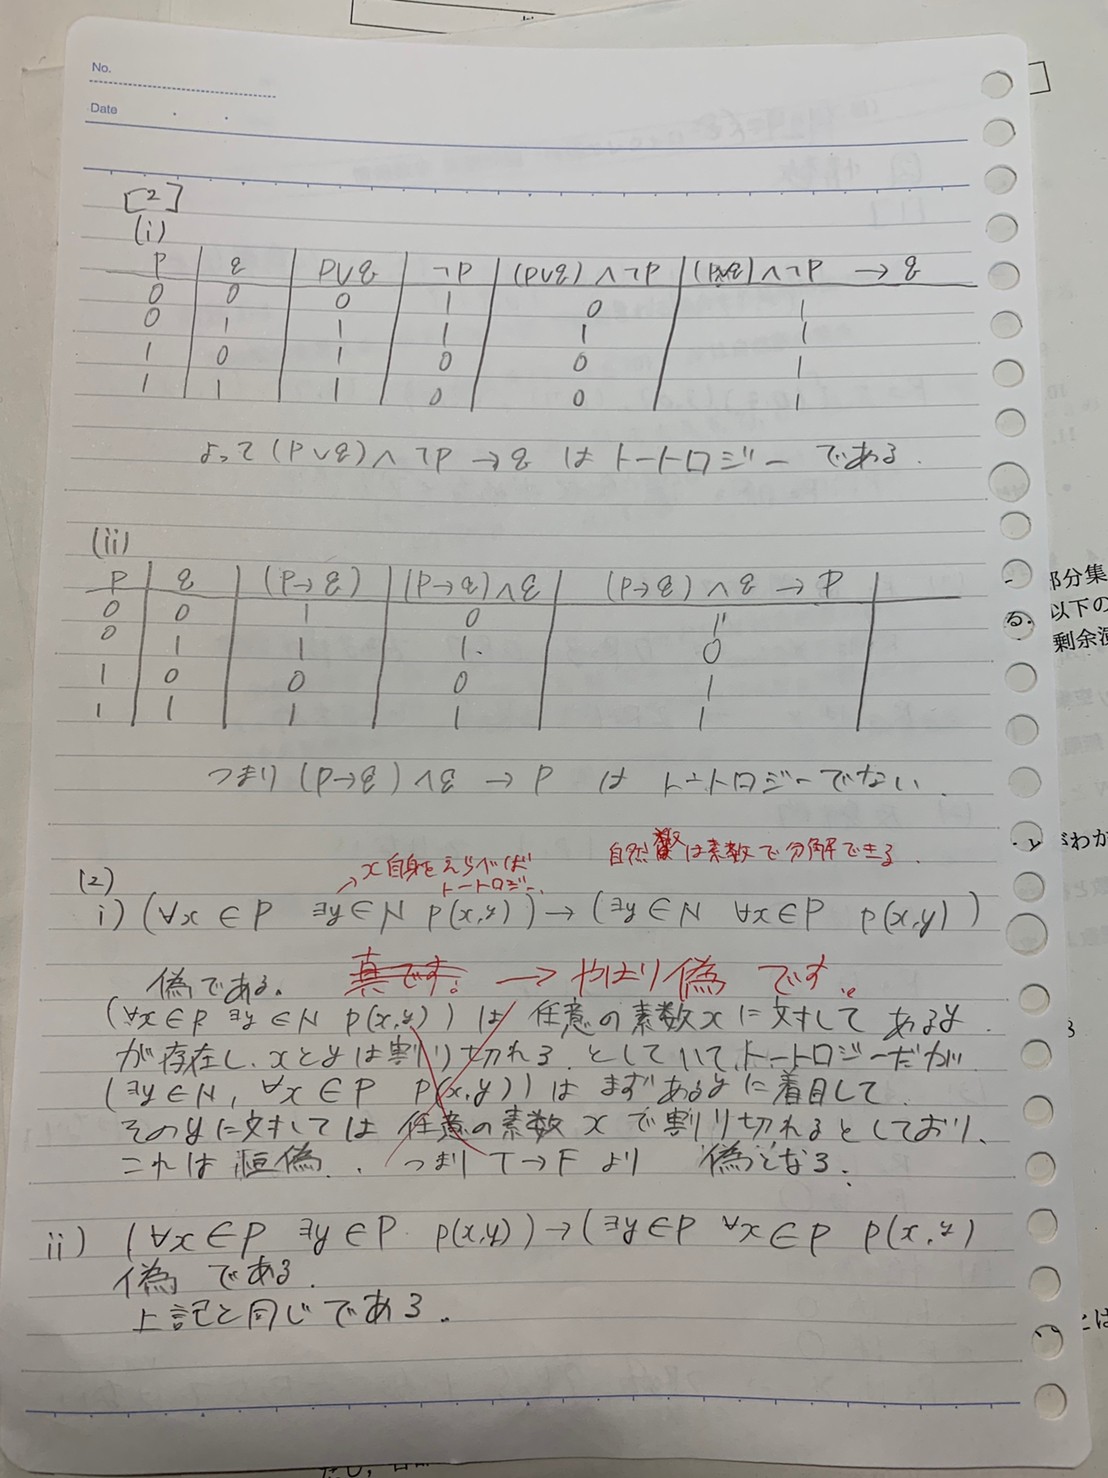 No.
Date
[2]
(i)
P q P∨q ¬P (P∨q)∧¬P (P∨q)∧¬P → q
0 0 0 1 0 1
0 1 1 1 1 1
1 0 1 0 0 1
1 1 1 0 0 1
よって (P∨q)∧¬P→q は トートロジー である.
(ii)
P q (P→q) (P→q)∧q (P→q)∧q → P
0 0 1 0 1
0 1 1 1 0
1 0 0 0 1
1 1 1 1 1
つまり (P→q)∧q → P は トートロジーでない.
→ x自身をえらべば
トートロジー.
自然数は素数で分解できる.
(2)
i) (∀x∈P ∃y∈N p(x,y))→(∃y∈N ∀x∈P p(x,y))
偽である. 真です. → やはり偽です.
(∀x∈P ∃y∈N p(x,y))は 任意の素数xに対して あるy
が存在し、xとyは割り切れる としていて、トートロジーだが
(∃y∈N, ∀x∈P p(x,y))は まずあるyに着目して
そのyに対しては 任意の素数xで割り切れるとしており、
これは恒偽. つまり T→F より 偽となる.
ii) (∀x∈P ∃y∈P p(x,y))→(∃y∈P ∀x∈P p(x,y)
偽である.
上記と同じである.
部分集
る. 以下の
剰余演
がわか
とは